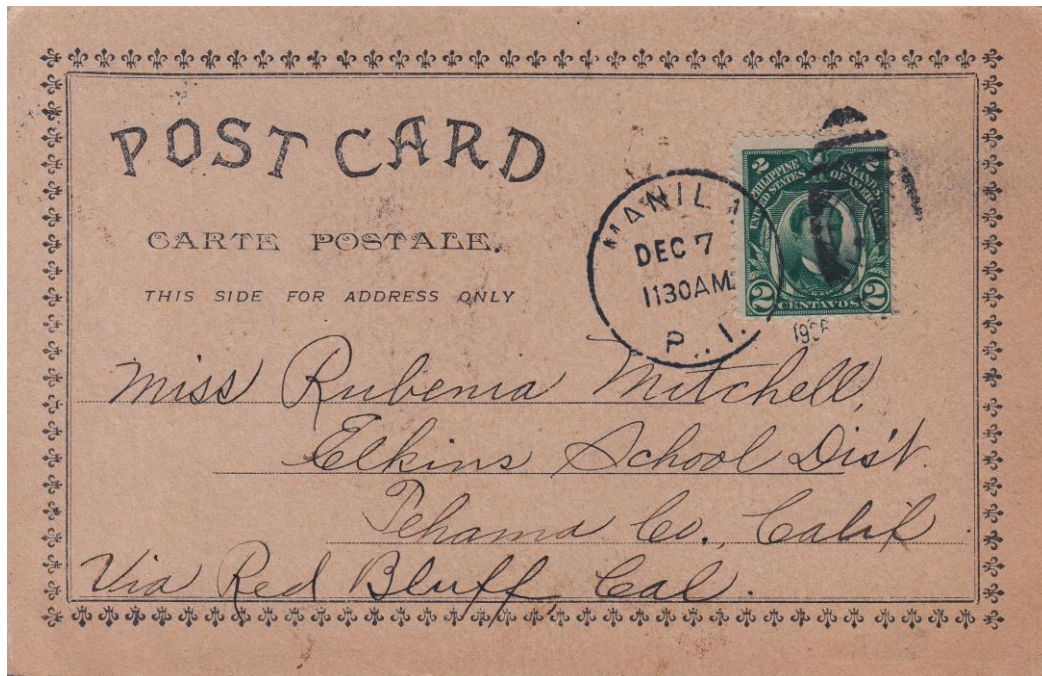 POST CARD
CARTE POSTALE.
THIS SIDE FOR ADDRESS ONLY
MANILA
DEC 7
1130AM
P. I.
2 2
PHILIPPINE ISLANDS
UNITED STATES OF AMERICA
2 CENTAVOS 2
Miss Rubenia Mitchell,
Elkins School Dis't.
Tehama Co., Calif
Via Red Bluff, Cal.